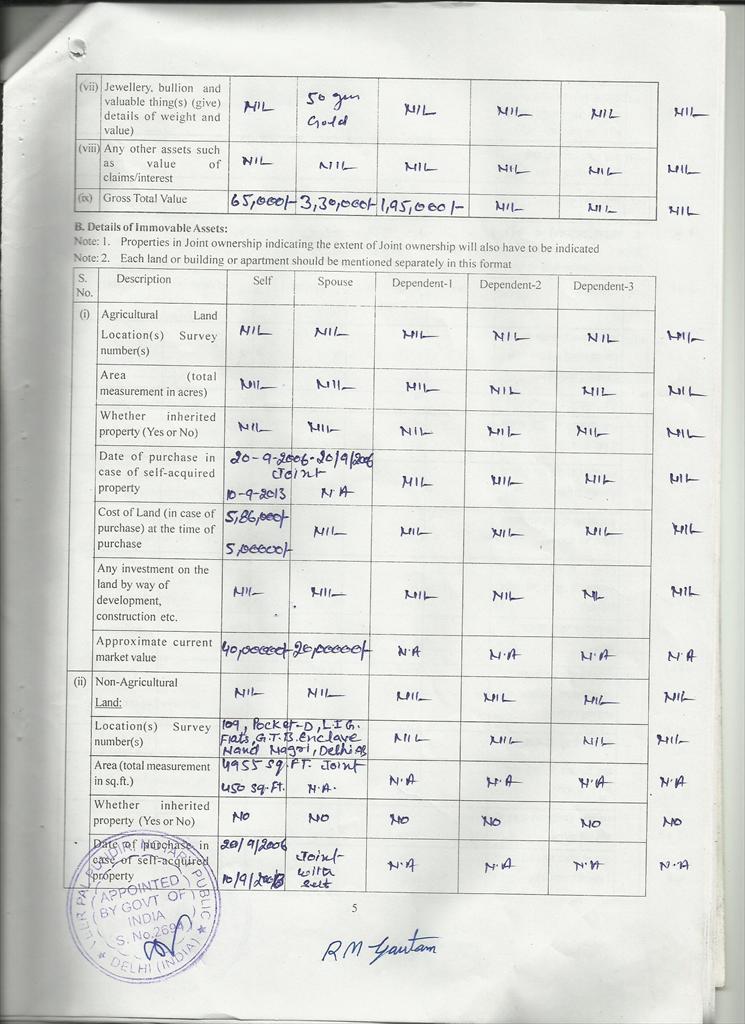 (vii) Jewellery, bullion and
valuable thing(s) (give)
details of weight and
value)
NIL
50 gm
Gold
NIL NIL NIL NIL
(viii) Any other assets such
as value of
claims/interest
NIL NIL NIL NIL NIL NIL
(ix) Gross Total Value 65,000/- 3,30,000/- 1,95,000/- NIL NIL NIL
B. Details of Immovable Assets:
Note: 1. Properties in Joint ownership indicating the extent of Joint ownership will also have to be indicated
Note: 2. Each land or building or apartment should be mentioned separately in this format
S.
No.
Description Self Spouse Dependent-1 Dependent-2 Dependent-3
(i) Agricultural Land
Location(s) Survey
number(s)
NIL NIL NIL NIL NIL NIL
Area (total
measurement in acres)
NIL NIL NIL NIL NIL NIL
Whether inherited
property (Yes or No)
NIL NIL NIL NIL NIL NIL
Date of purchase in
case of self-acquired
property
20-9-2006 - 20/9/2006
Joint
10-9-2013 N.A
NIL NIL NIL NIL
Cost of Land (in case of
purchase) at the time of
purchase
5,86,000/-
5,00000/-
NIL NIL NIL NIL NIL
Any investment on the
land by way of
development,
construction etc.
NIL NIL NIL NIL NIL NIL
Approximate current
market value
40,00000/- 20,00000/- N.A N.A N.A N.A
(ii) Non-Agricultural
Land:
NIL NIL NIL NIL NIL NIL
Location(s) Survey
number(s)
109, Pocket-D, L.I.G.
Flats, G.T.B. Enclave
Nand Nagri, Delhi
NIL NIL NIL NIL
Area (total measurement
in sq.ft.)
4955 Sq.FT. Joint
450 Sq.Ft. N.A.
N.A N.A N.A N.A
Whether inherited
property (Yes or No)
NO NO NO NO NO NO
Date of purchase in
case of self-acquired
property
20/9/2006
10/9/2013
Joint
with
self
N.A N.A N.A N.A
5
PAL PUNDIR NOTARY PUBLIC
APPOINTED
BY GOVT OF
INDIA
S. No.2694
★ DELHI (INDIA) ★
RM Gautam